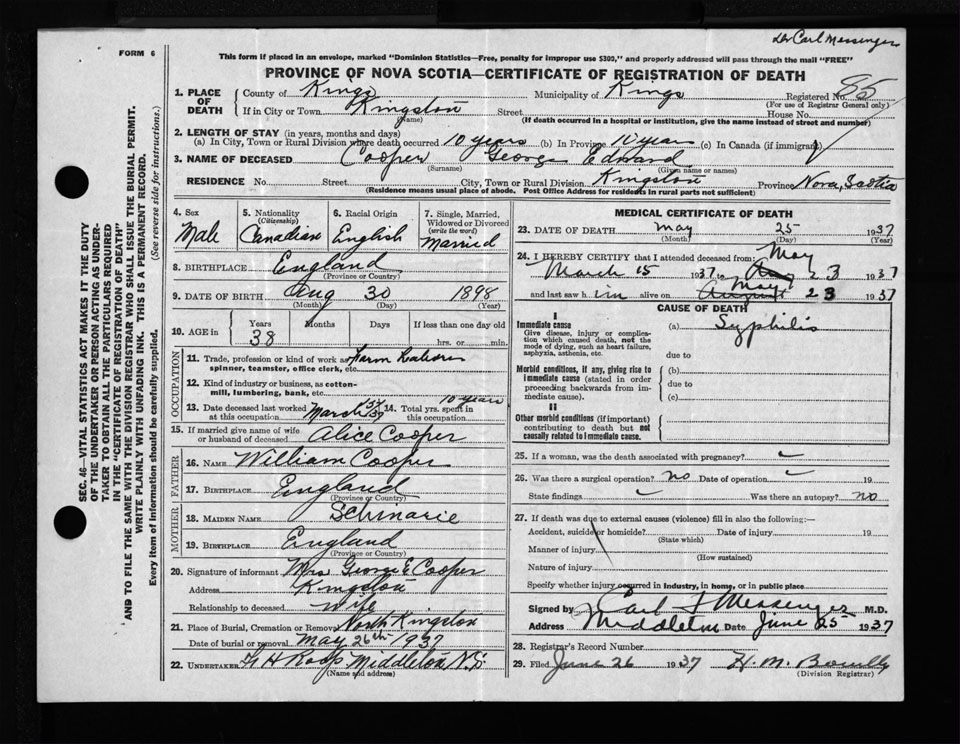 Dr Carl Messenger
FORM 6
This form if placed in an envelope, marked "Dominion Statistics—Free, penalty for improper use $300," and properly addressed will pass through the mail "FREE"
PROVINCE OF NOVA SCOTIA—CERTIFICATE OF REGISTRATION OF DEATH
1. PLACE OF DEATH { County of Kings Municipality of Kings Registered No. 85
(For use of Registrar General only)
If in City or Town Kingston Street House No.
(Name) (If death occurred in a hospital or institution, give the name instead of street and number)
2. LENGTH OF STAY (in years, months and days)
(a) In City, Town or Rural Division where death occurred 10 years (b) In Province 10 years (c) In Canada (if immigrant)
3. NAME OF DECEASED Cooper George Edward
(Surname) (Given name or names)
RESIDENCE No. Street City, Town or Rural Division Kingston Province Nova Scotia
(Residence means usual place of abode. Post Office Address for residents in rural parts not sufficient)
4. Sex Male
5. Nationality (Citizenship) Canadian
6. Racial Origin English
7. Single, Married, Widowed or Divorced (write the word) Married
8. BIRTHPLACE England
(Province or Country)
9. DATE OF BIRTH Aug 30 1898
(Month) (Day) (Year)
10. AGE in { Years 38 Months Days If less than one day old
hrs. or min.
OCCUPATION
11. Trade, profession or kind of work as Farm
spinner, teamster, office clerk, etc.
12. Kind of industry or business, as cotton-
mill, lumbering, bank, etc.
13. Date deceased last worked at this occupation March 15/37 14. Total yrs. spent in this occupation 10 years
15. If married give name of wife or husband of deceased Alice Cooper
FATHER
16. NAME William Cooper
17. BIRTHPLACE England
(Province or Country)
MOTHER
18. MAIDEN NAME
19. BIRTHPLACE England
(Province or Country)
20. Signature of informant Mrs George E Cooper
Address Kingston
Relationship to deceased wife
21. Place of Burial, Cremation or Removal North Kingston
Date of burial or removal May 26th 1937
22. UNDERTAKER Middleton N.S.
(Name and address)
MEDICAL CERTIFICATE OF DEATH
23. DATE OF DEATH May 25 1937
(Month) (Day) (Year)
24. I HEREBY CERTIFY that I attended deceased from:
March 15 1937 to May 23 1937
and last saw h im alive on May 23 1937
CAUSE OF DEATH
I
Immediate cause
Give disease, injury or complication which caused death, not the mode of dying, such as heart failure, asphyxia, asthenia, etc.
(a) Syphilis
due to
Morbid conditions, if any, giving rise to immediate cause (stated in order proceeding backwards from immediate cause).
(b)
due to
(c)
II
Other morbid conditions (if important) contributing to death but not causally related to immediate cause.
25. If a woman, was the death associated with pregnancy?
26. Was there a surgical operation? no Date of operation 19
State findings Was there an autopsy? no
27. If death was due to external causes (violence) fill in also the following:
Accident, suicide or homicide? Date of injury 19
(State which)
Manner of injury
(How sustained)
Nature of injury
Specify whether injury occurred in industry, in home, or in public place
Signed by Carl F Messenger M.D.
Address Middleton Date June 25 1937
28. Registrar's Record Number
29. Filed June 26 1937 H. M.
(Division Registrar)
SEC. 46—VITAL STATISTICS ACT MAKES IT THE DUTY
OF THE UNDERTAKER OR PERSON ACTING AS UNDER-
TAKER TO OBTAIN ALL THE PARTICULARS REQUIRED
IN THE "CERTIFICATE OF REGISTRATION OF DEATH"
AND TO FILE THE SAME WITH THE DIVISION REGISTRAR WHO SHALL ISSUE THE BURIAL PERMIT.
WRITE PLAINLY WITH UNFADING INK. THIS IS A PERMANENT RECORD.
Every item of information should be carefully supplied. (See reverse side for instructions.)